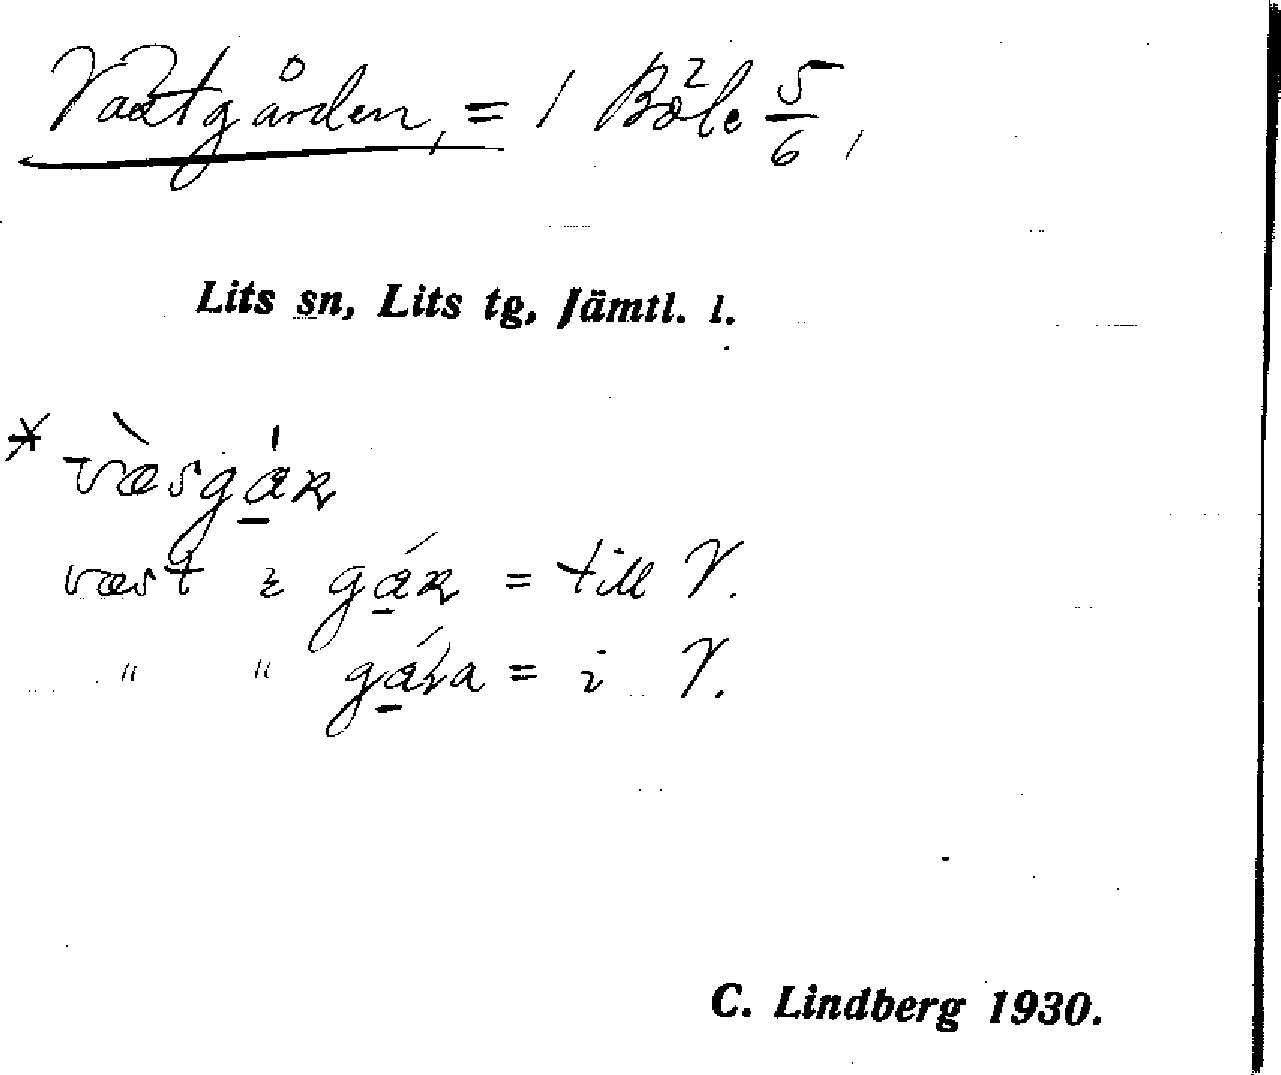 Västgården, = 1 Böle² 5/6,
Lits sn, Lits tg, Jämtl. l.
* vàsgá̱ɴ
væst i gá̱ɴ = till V.
" " gá̱ɹa = i V.
C. Lindberg 1930.